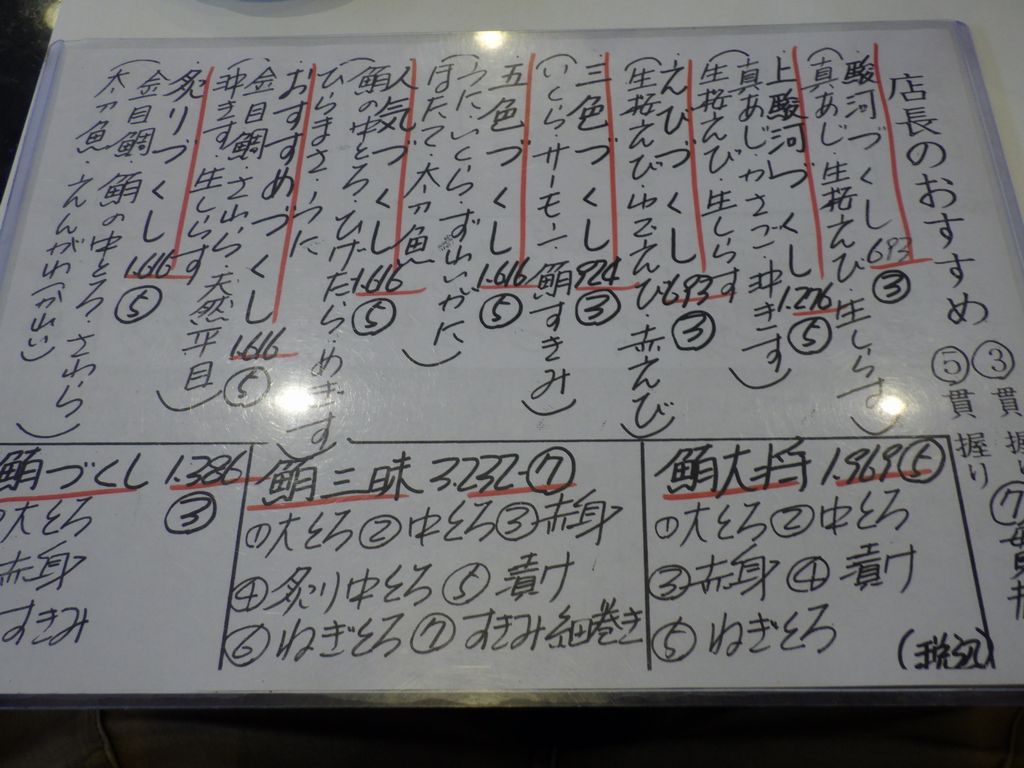 店長のおすすめ
③貫握り
⑤貫握り
駿河づくし 693 ③
(真あじ・生桜えび・生しらす)
上駿河づくし 1.276 ⑤
(真あじ・かさご・沖きす
生桜えび・生しらす)
えびづくし 693 ③
(生桜えび・ゆでえび・赤えび)
三色づくし 924 ③
(いくら・サーモン・鮪すきみ)
五色づくし 1.616 ⑤
(うに・いくら・ずわいがに
ほたて・太刀魚)
人気づくし 1.616 ⑤
(鮪の中とろ・ひげたら・めぎす
ひらまさ・うに)
おすすめづくし 1.616 ⑤
(金目鯛・さわら・天然平目
沖きす・生しらす)
炙りづくし 1.615 ⑤
(金目鯛・鮪の中とろ・さわら
太刀魚・えんがわ(かれい))
鮪大将 1.969 ⑤
①大とろ②中とろ
③赤身④漬け
⑤ねぎとろ
鮪三昧 3.232 ⑦
①大とろ②中とろ③赤身
④炙り中とろ⑤漬け
⑥ねぎとろ⑦すきみ細巻き
鮪づくし 1.386
③
大とろ
赤身
すきみ
(税込)